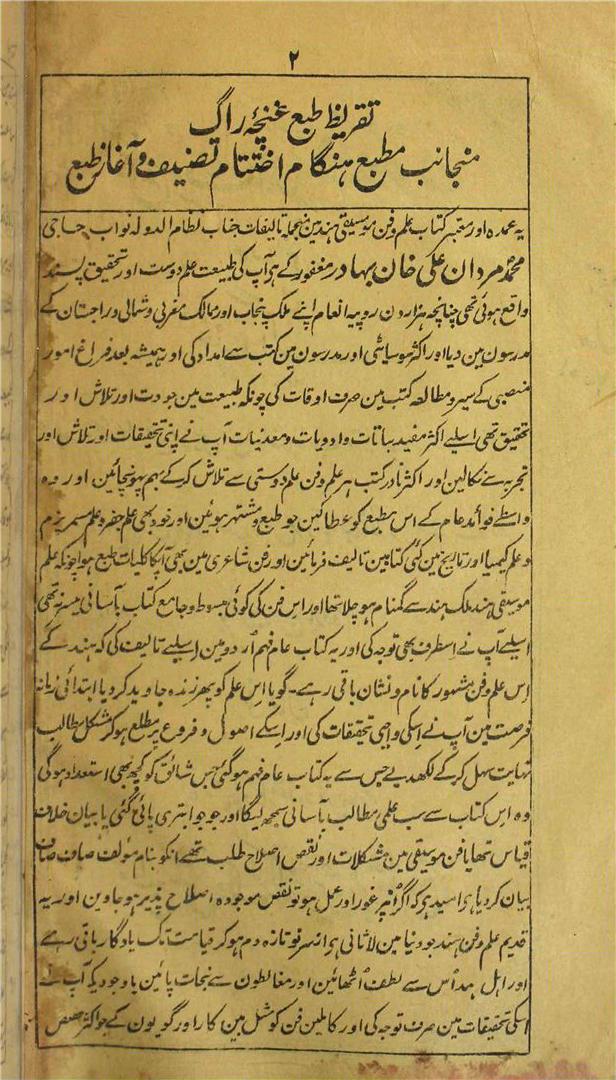 ۲
تقریظ طبع غنچۂ راگ
منجانب مطبع ہنگام اختتام تصنیف و آغاز طبع
یہ عمدہ اور معتبر کتاب علم و فن موسیقی ہند مین منجملہ تالیفات جناب نظام الدولہ نواب حاجی
محمد مردان علی خان بہادر مغفور کے ہی آپ کی طبیعت علم دوست اور تحقیق پسند
واقع ہوئی تھی چنانچہ ہزارون روپیہ انعام اپنے ملک پنجاب اور ممالک مغربی و شمالی و راجستان کے
مدرسون مین دیا اور اکثر سوسیائٹی اور مدرسون مین کتب سے امداد کی اور ہمیشہ بعد فراغ امور
منصبی کے سیر و مطالعہ کتب مین صرف اوقات کی چونکہ طبیعت مین جودت اور تلاش اور
تحقیق تھی اسلیے اکثر مفید نباتات و ادویات و معدنیات آپ نے اپنی تحقیقات اور تلاش اور
تجربہ سے نکالین اور اکثر نادر کتب ہر علم و فن علم دوستی سے تلاش کرکے بہم پہونچائین اور وہ
واسطے فوائد عام کے اس مطبع کو عطا کین جو طبع و مشتہر ہوئین اور خود بھی علم جفر و علم مسمریزم
و علم کیمیا اور تاریخ مین کئی کتابین تالیف فرمائین اور فن شاعری مین بھی آپکا کلیات طبع ہوا چونکہ علم
موسیقی ہند ملک ہند سے گمنام ہو چلا تھا اور اس فن کی کوئی مبسوط و جامع کتاب بآسانی میسر نہ تھی
اسلیے آپ نے اسطرف بھی توجہ کی اور یہ کتاب عام فہم اردو مین اسلیے تالیف کی کہ ہند کے
اس علم و فن مشہور کا نام و نشان باقی رہے۔ گویا اس علم کو پھر زندہ جاوید کر دیا ابتدائی زمانہ
فرصت مین آپ نے اسکی واجبی تحقیقات کی اور اسکے اصول و فروع پر مطلع ہوکر مشکل مطالب
نہایت سہل کرکے لکھدیے جس سے یہ کتاب عام فہم ہو گئی جس شائق کو کچھ بھی استعداد ہوگی
وہ اس کتاب سے سب علمی مطالب بآسانی سمجھ لیگا اور جو جو ابتری پائی گئی یا بیان خلاف
قیاس تھا یا فن موسیقی مین مشکلات اور نقص اصلاح طلب تھے انکو بنام مؤلف صاف صاف
بیان کر دیا ہی امید ہی کہ اگر انپر غور اور عمل ہو تو نقص موجودہ اصلاح پذیر ہو جاوین اور یہ
قدیم علم و فن ہند جو دنیا مین لاثانی ہی ازسرنو تازہ دم ہوکر قیامت تک یادگار باقی رہے
اور اہل ہند اس سے لطف اٹھائین اور مغالطون سے نجات پائین باوجودیکہ آپ نے
اسکی تحقیقات مین صرف توجہ کی اور کاملین فن کو مثل بین کار اور گویون کے جو اکثر